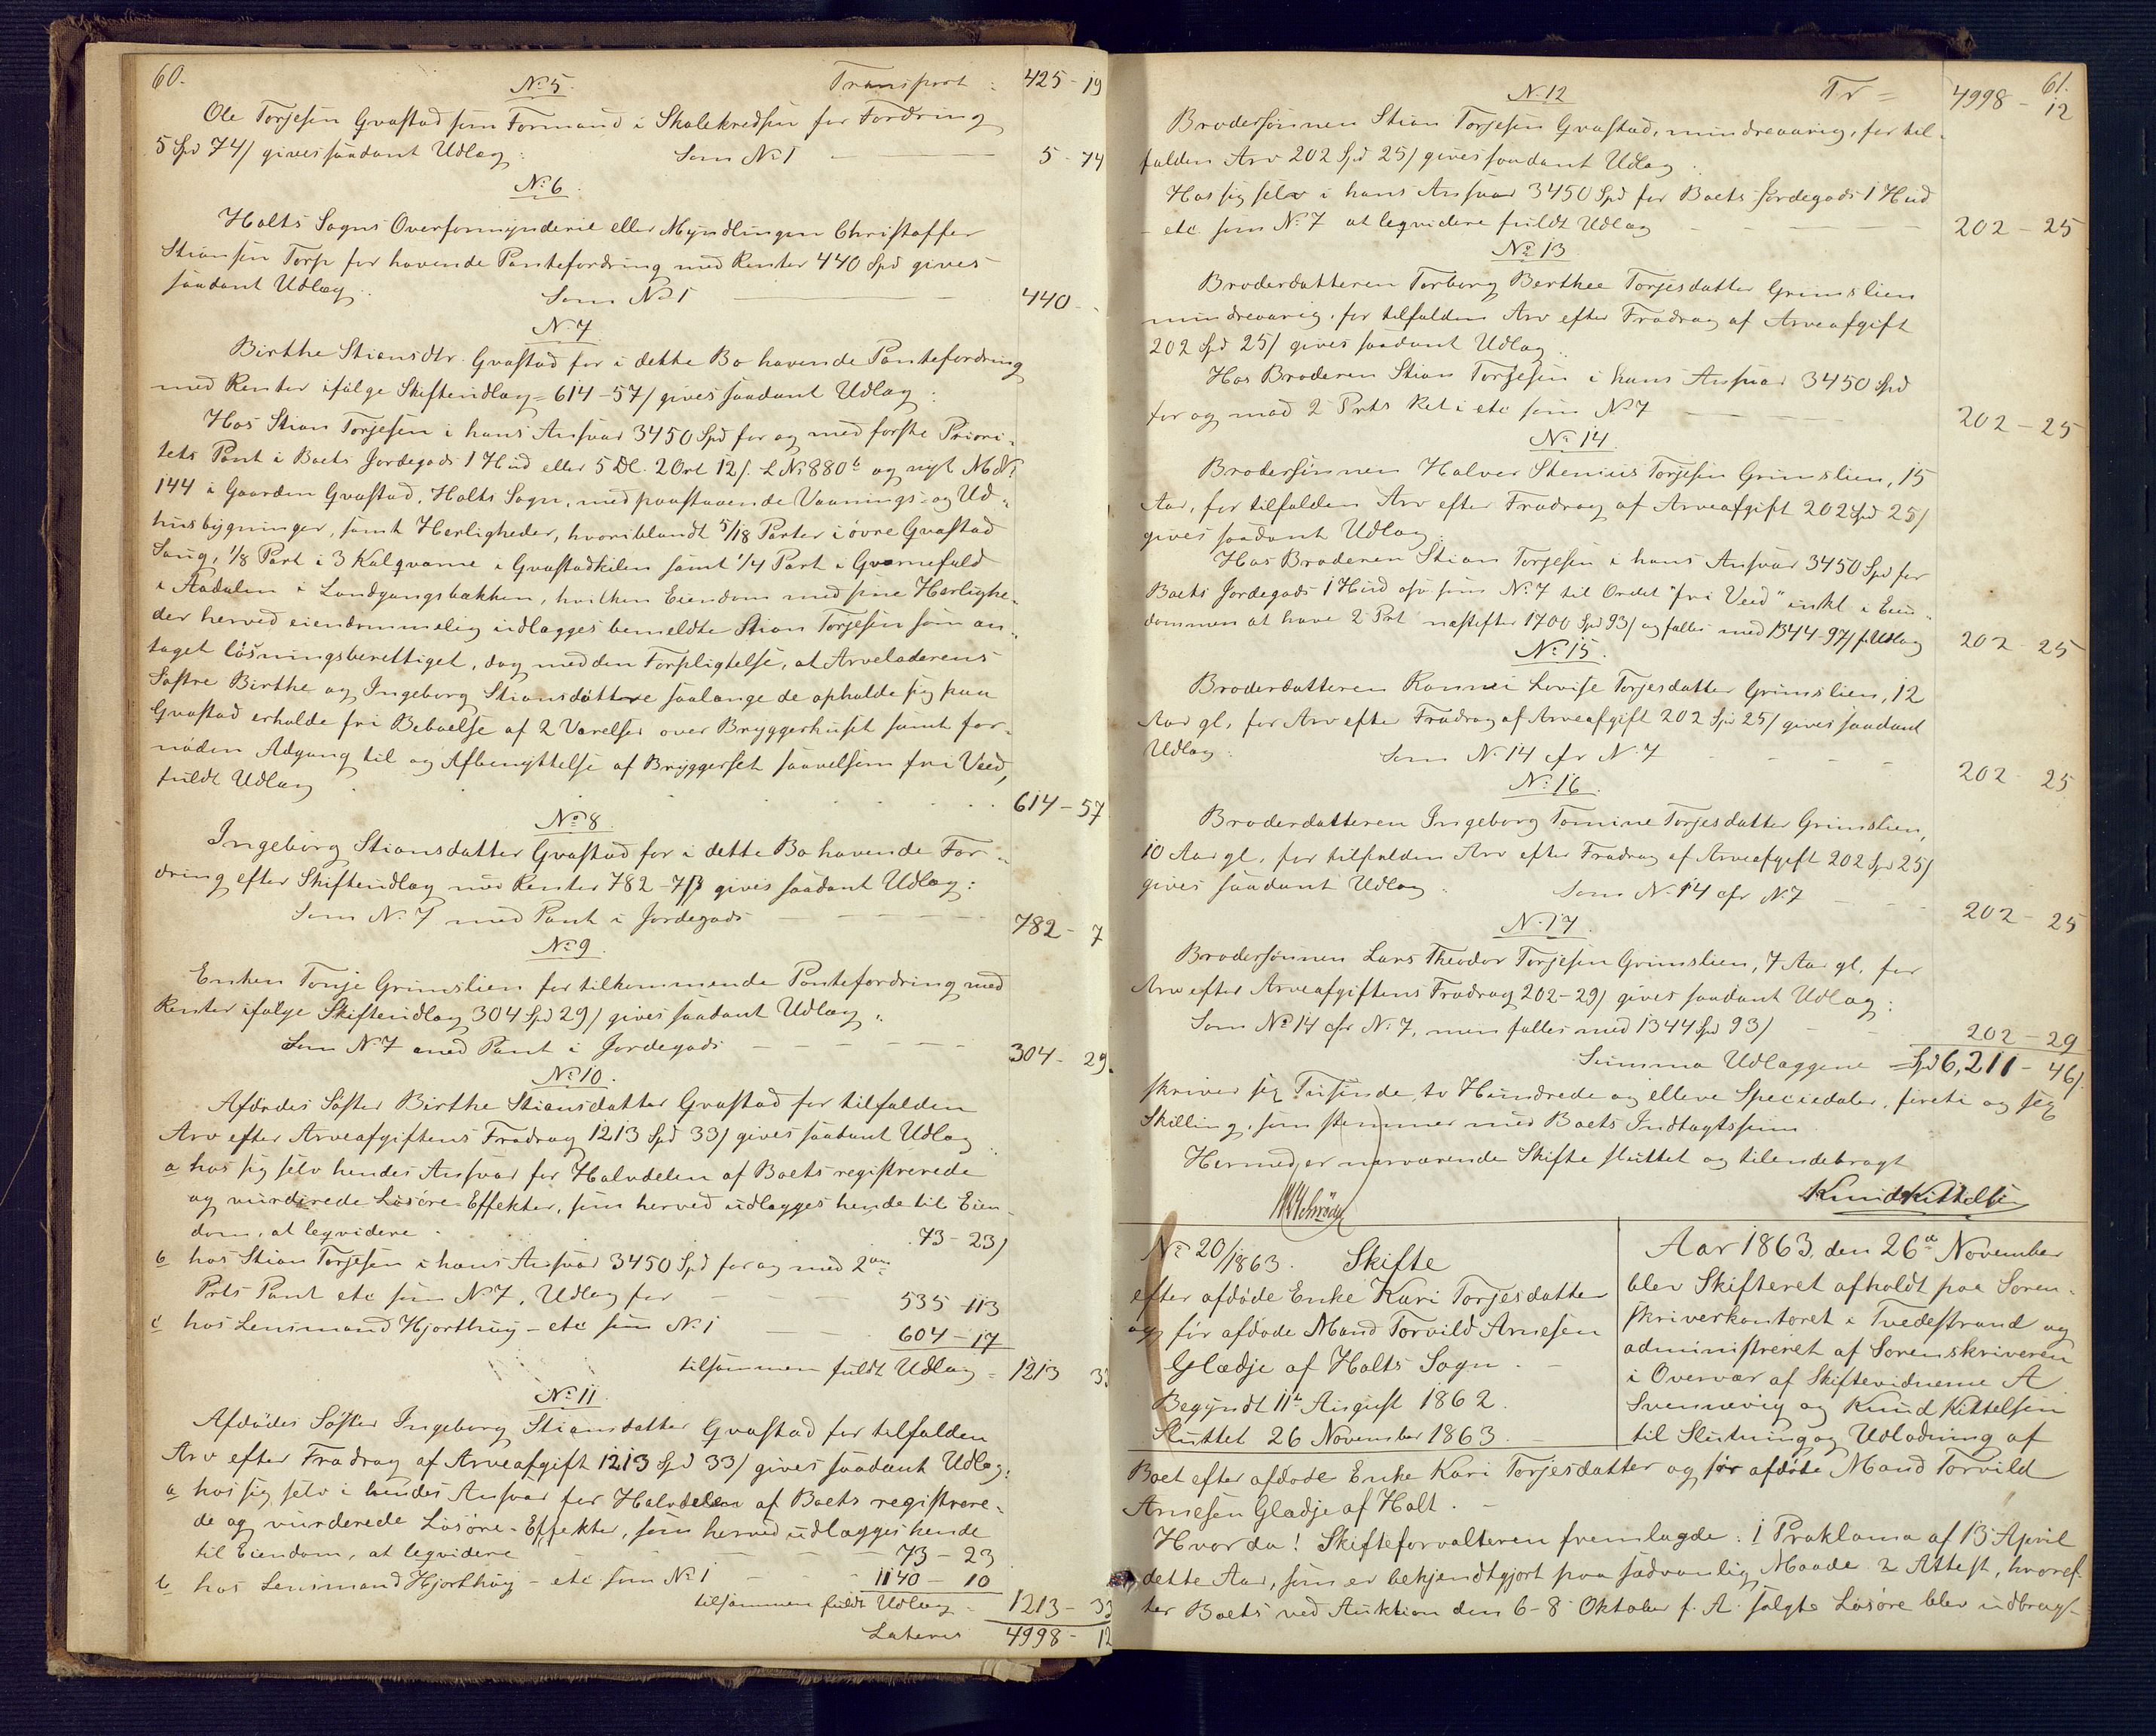 60.
No 5. Transport : 425 - 19
Ole Torjesen Gvastad som Formand i Skolekredsen for Fordring
5 Spd 74/ gives saadant Udlæg: Som No 1 5 - 74
No 6.
Holts Sogns Overformynderie eller Myndlingen Christoffer
Stiansen Torp for havende Pantefordring med Renter 440 Spd gives
saadant Udlæg. Som No 1 440 -
No 7
Birthe Stiansdtr. Gvastad for i dette Bo havende Pantefordring
med Renter ifølge Skifteudlæg = 614 - 57/ gives saadant Udlæg:
Hos Stian Torjesen i hans Ansvar 3450 Spd for og med første Priori-
tets Pant i Boets Jordegods 1 Hud eller 5 Dl. 2 Ort 12/. L No 880b og nyt M No
144 i Gaarden Gvastad, Holts Sogn, med paastaaende Vaanings- og Ud-
husbygninger, samt Herligheder, hvoriblandt 5/18 Parter i øvre Gvastad
Saug, 1/8 Part i 3 Kalqvarne i Gvastadkilen samt 1/4 Part i Gvarnefald
i Aadalen i Landgangsbakken, hvilken Eiendom med sine Herlighe-
der herved eiendommelig udlægges bemeldte Stian Torjesen som an-
taget løsningsberettiget, dog med den Forpligtelse, at Arveladerens
Søstre Birthe og Ingeborg Stiansdattre saalænge de opholde sig paa
Gvastad erholde fri Beboelse af 2 Værelser over Bryggerhuset samt for-
nøden Adgang til og Afbenyttelse af Bryggerset saavelsom fri Veed,
fuldt Udlæg 614 - 57
No 8.
Ingeborg Stiansdatter Gvastad for i dette Bo havende For-
dring efter Skifteudlæg med Renter 782 - 7/3 gives saadant Udlæg:
Som No 7 med Pant i Jordegods 782 - 7
No 9.
Enken Tonje Grimslien for tilkommende Pantefordring med
Renter ifølge Skifteudlæg 304 Spd 29/ gives saadant Udlæg:
Som No 7 med Pant i Jordegods 304 - 29
No 10.
Afdødes Søster Birthe Stiansdatter Gvastad for tilfalden
Arv efter Arveafgiftens Fradrag 1213 Spd 33/ gives saadant Udlæg
a hos sig selv hendes Ansvar for Halvdelen af Boets registrerede
og vurderede Løsøre-Effekter, som herved udlægges hende til Eien-
dom, at leqvidere 73 - 23/
b hos Stian Torjesen i hans Ansvar 3450 Spd for og med 2den
Prts Pant etc som No 7, Udlæg for 535 - 113
c hos Lensmand Hjorthaug - etc som No 1 604 - 17
tilsammen fuldt Udlæg = 1213 33
No 11.
Afdødes Søster Ingeborg Stiansdatter Gvastad for tilfalden
Arv efter Fradrag af Arveafgift 1213 Spd 33/ gives saadant Udlæg:
a hos sig selv i hendes Ansvar for Halvdelen af Boets registrere-
de og vurderede Løsøre-Effekter, som herved udlægges hende
til Eiendom, at leqvidere 73 - 23
b hos Lensmand Hjorthaug - etc som No 1 1140 - 10
tilsammen fuldt Udlæg = 1213 - 33
Lateris 4998 - 12
61.
No 12 Tr = 4998 - 12
Brodersønnen Stian Torjesen Gvastad, mindreaarig, for til-
falden Arv 202 Spd 25/ gives saadant Udlæg:
Hos sig selv i hans Ansvar 3450 Spd for Boets Jordegods 1 Hud
- etc som No 7 at leqvidere fuldt Udlæg 202 - 25
No 13
Broderdatteren Torborg Berthee Torjesdatter Grimslien
mindreaarig, for tilfalden Arv efter Fradrag af Arveafgift
202 Spd 25/ gives saadant Udlæg:
Hos Broderen Stian Torjesen i hans Ansvar 3450 Spd
for og mod 2 Prts Ret i etc som No 7 202 - 25
No 14.
Brodersønnen Halvor Stenius Torjesen Grimslien, 15
Aar, for tilfalden Arv efter Fradrag af Arveafgift 202 Spd 25/
gives saadant Udlæg:
Hos Broderen Stian Torjesen i hans Ansvar 3450 Spd for
Boets Jordegods 1 Hud osv som No 7 til Ordet "fri Veed" inkl i Eien-
dommen at have 2 Prt næstefter 1700 Spd 93/ og fælles med 1344-97/ f. Udlæg 202 - 25
No 15.
Broderdatteren Ronnei Lovise Torjesdatter Grimslien, 12
Aar gl., for Arv efter Fradrag af Arveafgift 202 Spd 25/ gives saadant
Udlæg: Som No 14 cfr No 7 202 - 25
No 16.
Broderdatteren Ingeborg Tomine Torjesdatter Grimslien,
10 Aar gl., for tilfalden Arv efter Fradrag af Arveafgift 202 Spd 25/
gives saadant Udlæg: Som No 14 cfr No 7 202 - 25
No 17.
Brodersønnen Lars Theodor Torjesen Grimslien, 7 Aar gl. for
Arv efter Arveafgiftens Fradrag 202 - 29/ gives saadant Udlæg:
Som No 14 cfr No 7, men fælles med 1344 Spd 93/ 202 - 29
Summa Udlæggene = Spd 6,211 - 46/.
skriver sex Tusinde, to Hundrede og elleve Speciedaler, fireti og sex
Skilling, som stemmer med Boets Indtægtssum
Hermed er nærværende Skifte sluttet og tilendebragt
Schrøder Knud Kittelsen
No 20/1863. Skifte
efter afdøde Enke Kari Torjesdatter
og før afdøde Mand Torvild Arnesen
Glædje af Holts Sogn.
Begyndt 11te August 1862.
Sluttet 26 November 1863.
Aar 1863, den 26de November
blev Skifteret afholdt paa Soren-
skriverkontoret i Tvedestrand og
administreret af Sorenskriveren
i Overvær af Skiftevidnerne A.
Svennevig og Knud Kittelsen
til Slutning og Udlodning af
Boet efter afdøde Enke Kari Torjesdatter og før afdøde Mand Torvild
Arnesen Glædje af Holt. -
Hvorda! Skifteforvalteren fremlagde: 1 Proklama af 13 April
dette Aar, som er bekjendtgjort paa sædvanlig Maade 2 Attest, hvoref-
ter Boets ved Auktion den 6 - 8 Oktober f. A. solgte Løsøre blev udbragt